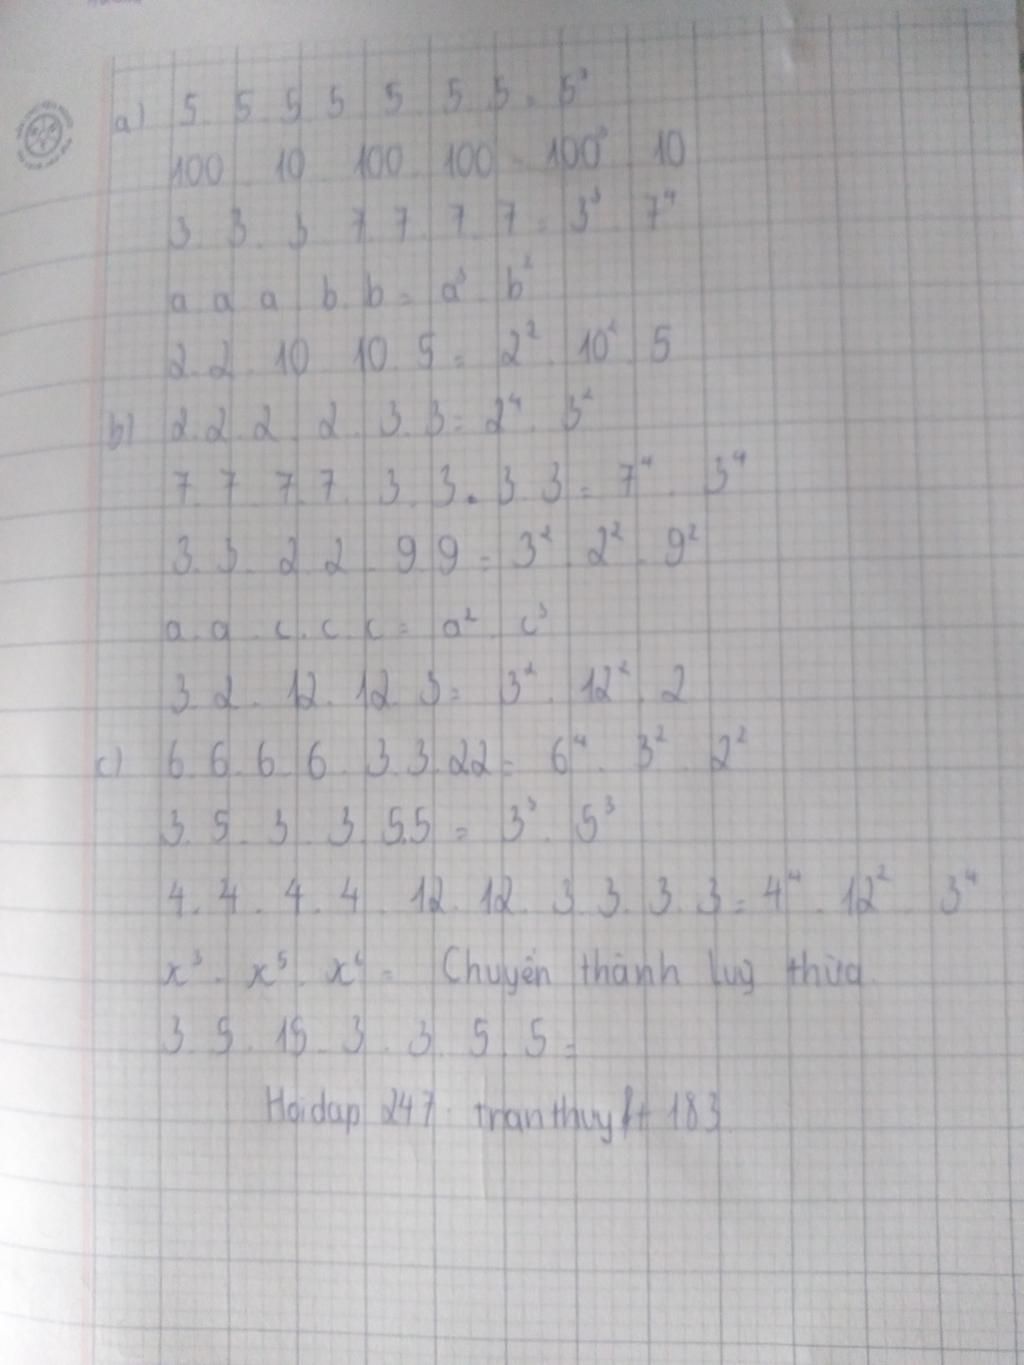 a) 5. 5. 5 5 5 5 5. = 5³
100 . 10 . 100 . 100 = 100³ . 10
3. 3. 3 7. 7. 7. 7 = 3³ . 7⁴
a. a. a . b. b = a³ . b²
2. 2. 10 . 10. 5 = 2² . 10² . 5
b) 2. 2. 2. 2. 3. 3 = 2⁴ . 3²
7. 7 7. 7. 3. 3. 3. 3 = 7⁴ . 3⁴
3. 3. 2. 2 . 9. 9 = 3² . 2² . 9²
a. a. c. c. c = a² . c³
3. 2. 12. 12. 3 = 3² . 12² . 2
c) 6. 6. 6. 6. 3. 3. 2.2 = 6⁴ . 3² . 2²
3. 5. 3. 3. 5.5 = 3³ . 5³
4. 4. 4. 4. 12. 12. 3. 3. 3. 3 = 4⁴ . 12² . 3⁴
x³ . x⁵ . = Chuyển thành luỹ thừa
3. 5. 15. 3. 3. 5. 5 =
Hoidap 247. tranthuy 183